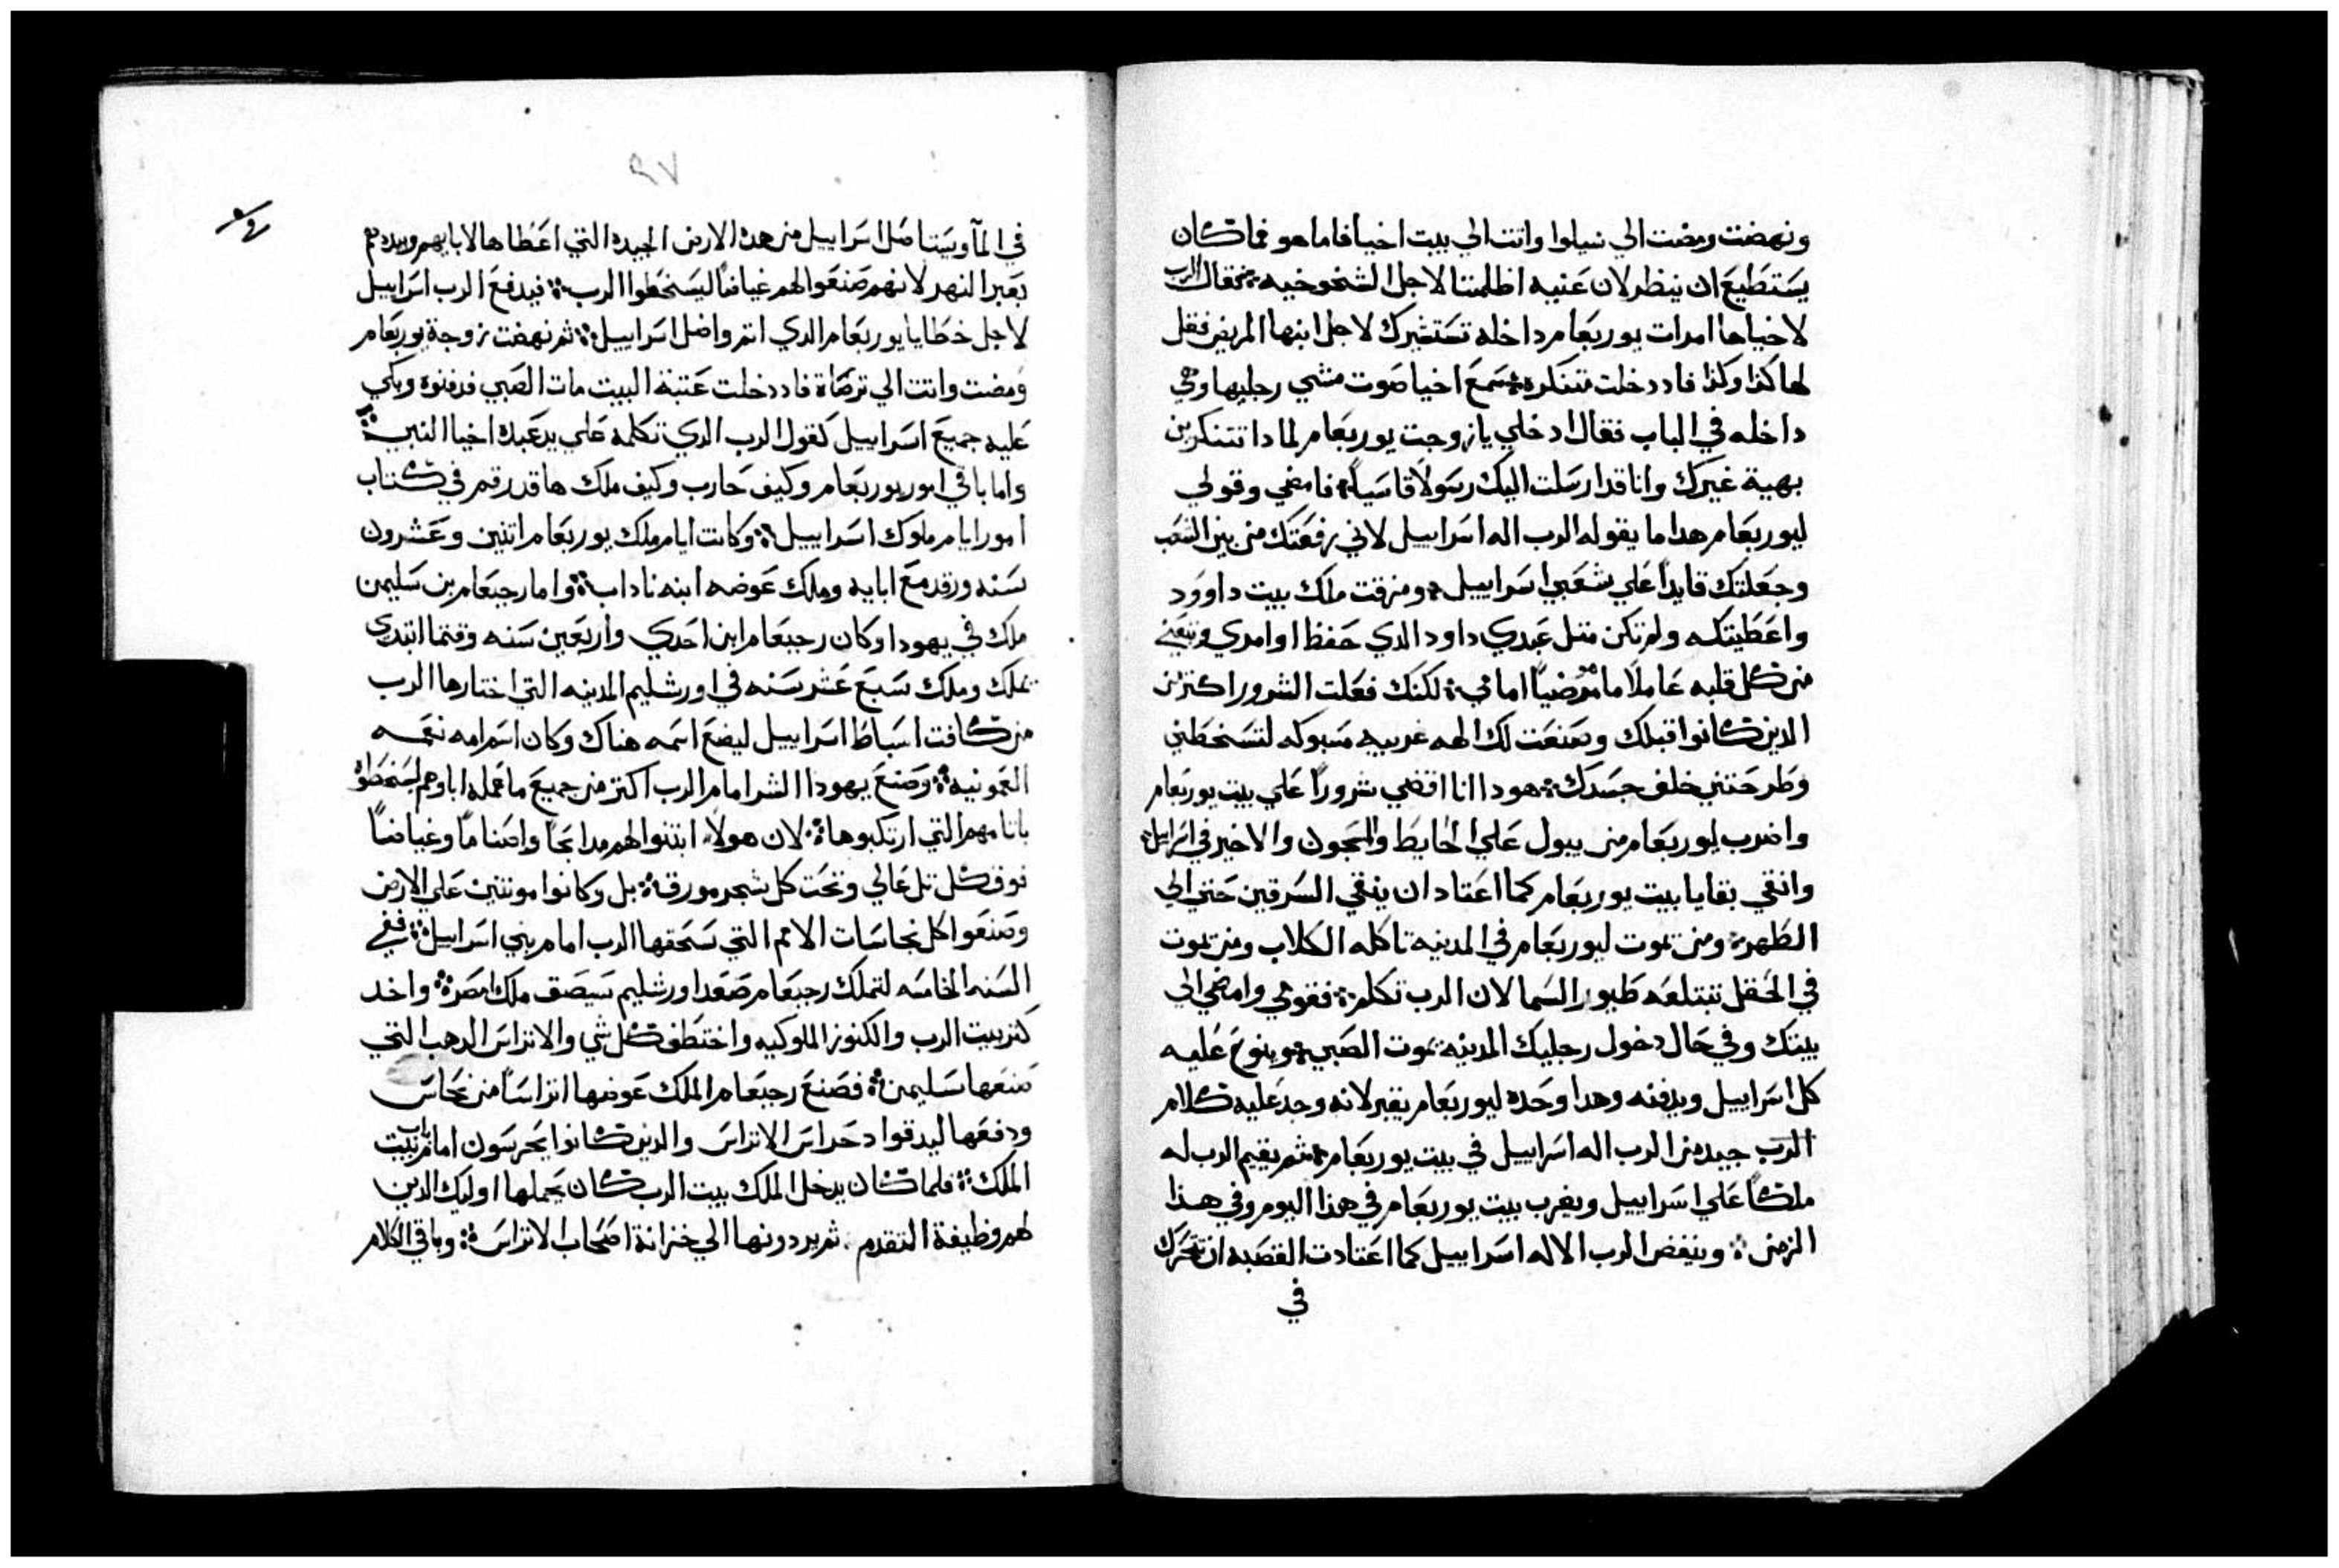 ونهضت ومضت الي سيلوا واتت الي بيت اخيا فاما هو فما كان
يستطيع ان ينظر لان عنيه اظلمتا لاجل الشخوخيه ثم قال الرب
لاخيا ها امرات يوربعام داخله تستخيرك لاجل ابنها المريض فقل
لها كذا وكذا فاد دخلت متنكره سمع اخيا صوت مشي رجليها وهي
داخله في الباب فقال ادخلي يا زوجت يوربعام لمادا تتنكرين
بهية غيرك وانا قد ارسلت اليك رسولا قاسيا فامضي وقولي
ليوربعام هدا ما يقوله الرب اله اسراييل لاني رفعتك من بين الشعب
وجعلتك قايدا علي شعبي اسراييل ومزقت ملك بيت داوود
واعطيتكه ولم تكن متل عبدي داود الدي حفظ اوامري وتبعني
من كل قلبه عاملا ما مرضيا امامي لكنك فعلت الشرور اكتر من
الدين كانوا قبلك وصنعت لك الهه غريبه مسبوكه لتسخطني
وطرحتني خلف جسدك هودا انا اقضي شرورا علي بيت يوربعام
واضرب ليوربعام من يبول علي الحايط والسجون والاخير في اسراييل
وانقي بقايا بيت يوربعام كما اعتاد ان ينقي السرقين حتي الي
الطهر ومن تموت ليوربعام في المدينه تاكله الكلاب ومن تموت
في الحقل تبتلعه طيور السما لان الرب تكلم فقومي وامضي الي
بيتك وفي حال دخول رجليك المدينه يموت الصبي وينوح عليه
كل اسراييل ويدفنه وهدا وحده ليوربعام يقبر لانه وجد عليه كلام
الرب جيد من الرب اله اسراييل في بيت يوربعام ثم يقيم الرب له
ملكا علي اسراييل ويضرب بيت يوربعام في هذا اليوم وفي هذا
الزمن وينفض الرب الاله اسراييل كما اعتادت القصبه ان تتحرك
في
٩٧
في المآ ويستاصل اسراييل من هده الارض الجيده التي اعطاها لابايهم ويبددهم
بعبر النهر لانهم صنعوا لهم غياضا ليسخطوا الرب فيدفع الرب اسراييل
لاجل خطايا يوربعام الدي اتم واضل اسراييل ثم نهضت زوجة يوربعام
ومضت واتت الي ترصاة فاد دخلت عتبة البيت مات الصبي فدفنوه وبكي
عليه جميع اسراييل كقول الرب الدي تكلمه علي يد عبده اخيا النبي
واما باقي امور يوربعام وكيف حارب وكيف ملك ها قد رقم في كتاب
امور ايام ملوك اسراييل وكانت ايام ملك يوربعام اتنين وعشرون
سنه ورقد مع ابايه وملك عوضه ابنه ناداب واما رحبعام بن سليمن
ملك في يهودا وكان رحبعام ابن احدي واربعين سنه وقتما ابتدي
تملك وملك سبع عشر سنه في اورشليم المدينه التي اختارها الرب
من كافت اسباط اسراييل ليضع اسمه هناك وكان اسم امه نعمه
العمونيه وصنع يهودا الشر امام الرب اكتر من جميع ما عمله اباوهم ليسخطوه
باتامهم التي ارتكبوها لان هولاء ابتنوا لهم مدابحا واصناما وغياضا
فوق كل تل عالي وتحت كل شجر مورق بل وكانوا مونتين علي الارض
وصنعوا كل نجاسات الامم التي سحقها الرب امام بني اسراييل ففي
السنه الخامسه لتملك رحبعام صعد اورشليم سيصق ملك مصر واخد
كنز بيت الرب والكنوز الملوكيه واختطف كل شي والاتراس الدهب التي
صنعها سليمن فصنع رحبعام الملك عوضها اتراسا من نحاس
ودفعها ليد قواد حراس الاتراس والدين كانوا يحرسون امام باب بيت
الملك فلما كان يدخل الملك بيت الرب كان يحملها اوليك الدين
لهم وظيفة التقدم ثم يردونها الي خزانة اصحاب الاتراس وباقي الكلام